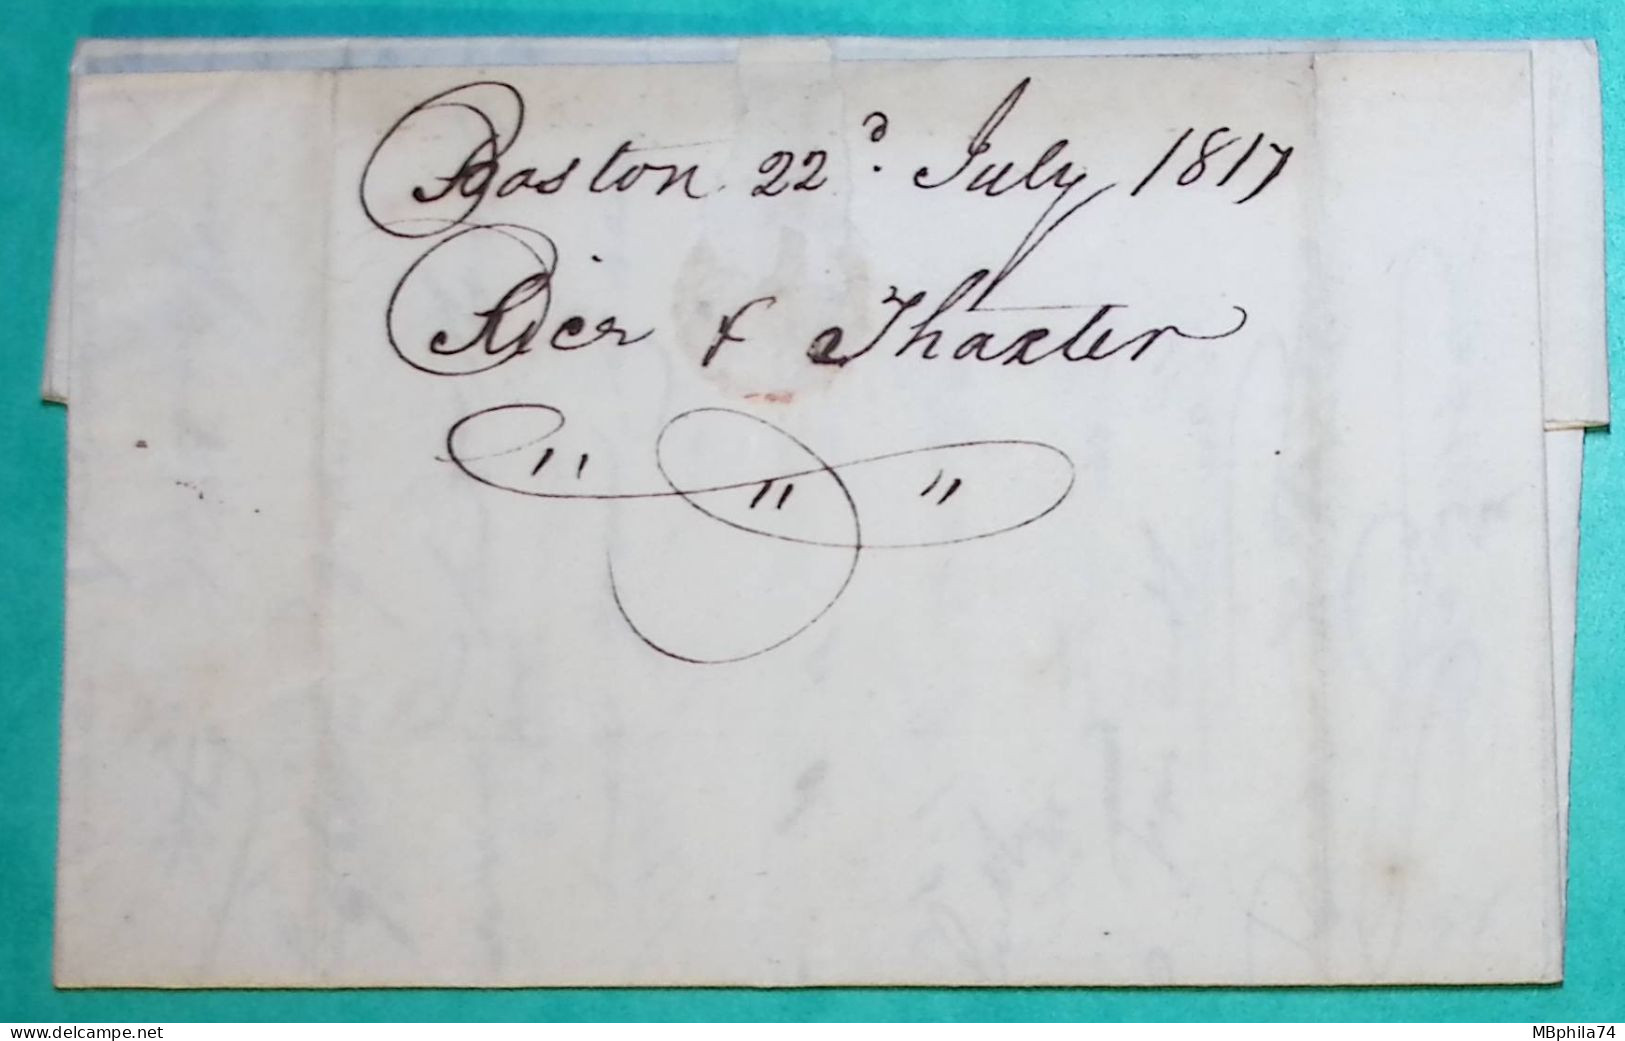 Boston 22d. July 1817
Rice & Thaxter
" " "
www.delcampe.net
MBphila74